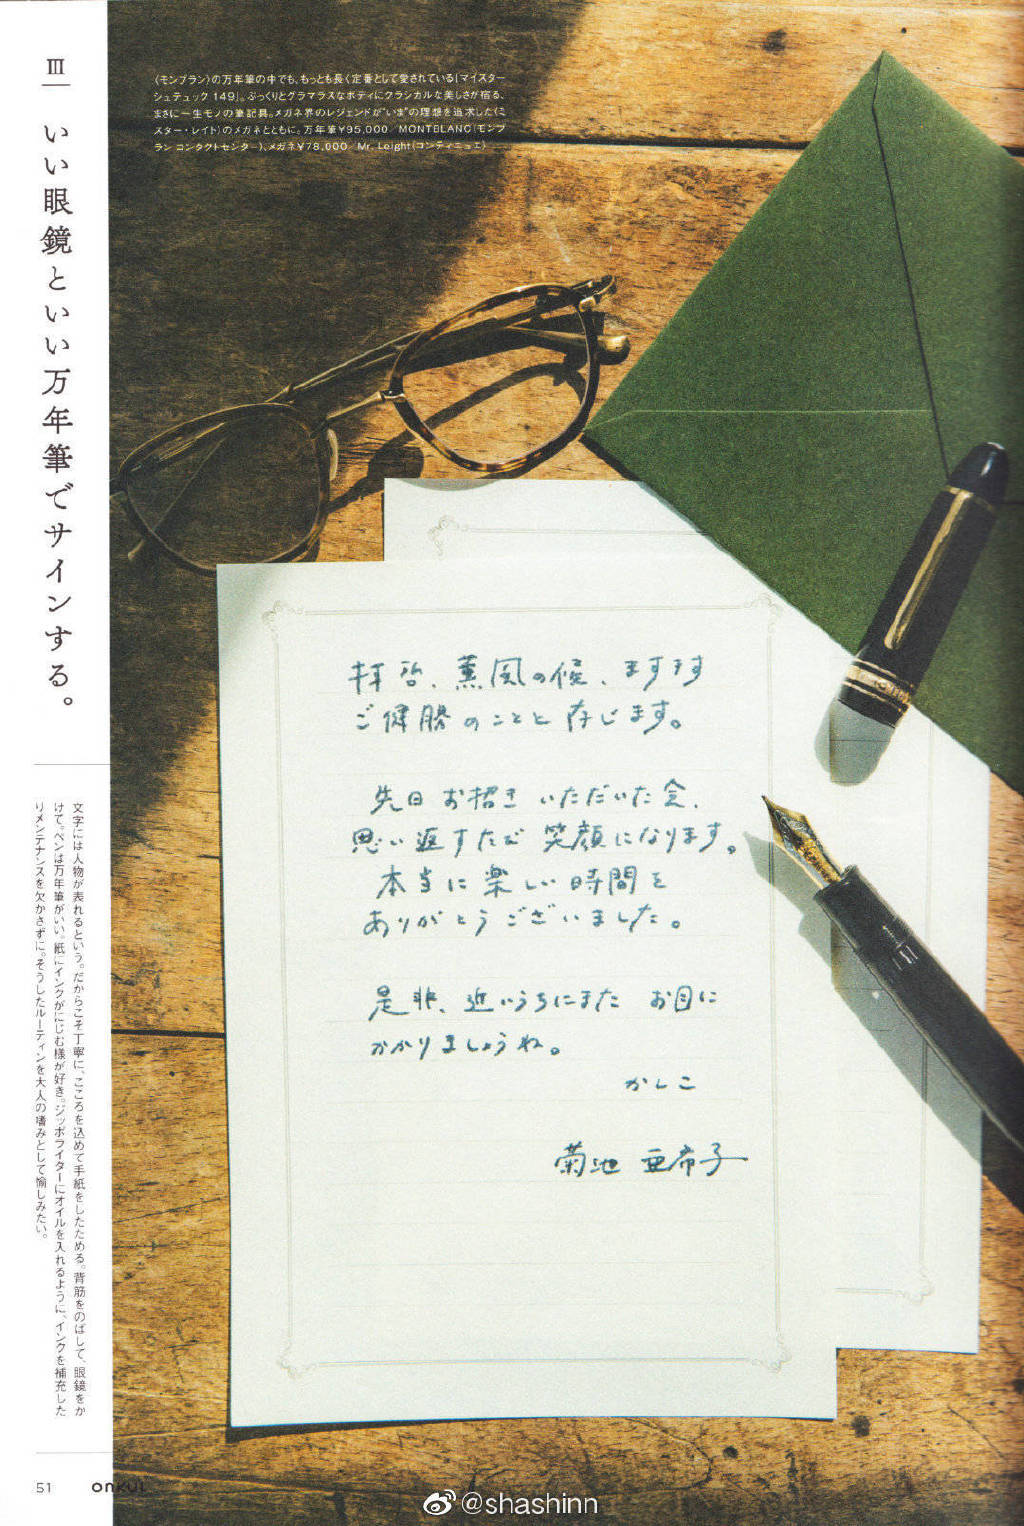 Ⅲ
いい眼鏡といい万年筆でサインする。
文字には人物が表れるという。だからこそ丁寧に、こころを込めて手紙をしたためる。背筋をのばして、眼鏡をか
けて。ペンは万年筆がいい。紙にインクがにじむ様が好き。ジッポライターにオイルを入れるように、インクを補充した
りメンテナンスを欠かさずに。そうしたルーティンを大人の嗜みとして愉しみたい。
〈モンブラン〉の万年筆の中でも、もっとも長く定番として愛されている「マイスター
シュテュック 149」。ぷっくりとグラマラスなボディにクラシカルな美しさが宿る、
まさに一生モノの筆記具。メガネ界のレジェンドが“いま”の理想を追求した〈ミ
スター・レイト〉のメガネとともに。万年筆¥95,000／MONTBLANC（モンブ
ラン コンタクトセンター）、メガネ¥78,000／Mr. Leight（コンティニュエ）
拝啓、薫風の候、ますます
ご健勝のことと存じます。
先日お招きいただいた会、
思い返すたび笑顔になります。
本当に楽しい時間を
ありがとうございました。
是非、近いうちにまた お目に
かかりましょうね。
かしこ
菊池 亜希子
51
onkul
@shashinn